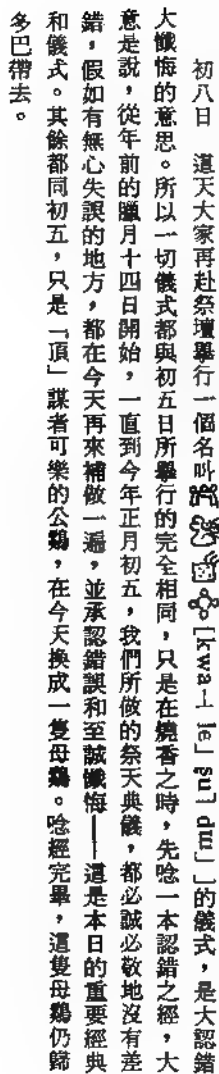 初八日　這天大家再赴祭壇舉行一個名叫[kwa˧ le˩ ʂu˥ dɯ˩]的儀式，是大認錯
大懺悔的意思。所以一切儀式都與初五日所舉行的完全相同，只是在燒香之時，先唸一本認錯之經，大
意是說，從年前的臘月十四日開始，一直到今年正月初五，我們所做的祭天典儀，都必誠必敬地沒有差
錯，假如有無心失誤的地方，都在今天再來補做一遍，並承認錯誤和至誠懺悔——這是本日的重要經典
和儀式。其餘都同初五，只是「頂」謀者可樂的公鷄，在今天換成一隻母鷄。唸經完畢，這隻母鷄仍歸
多巴帶去。